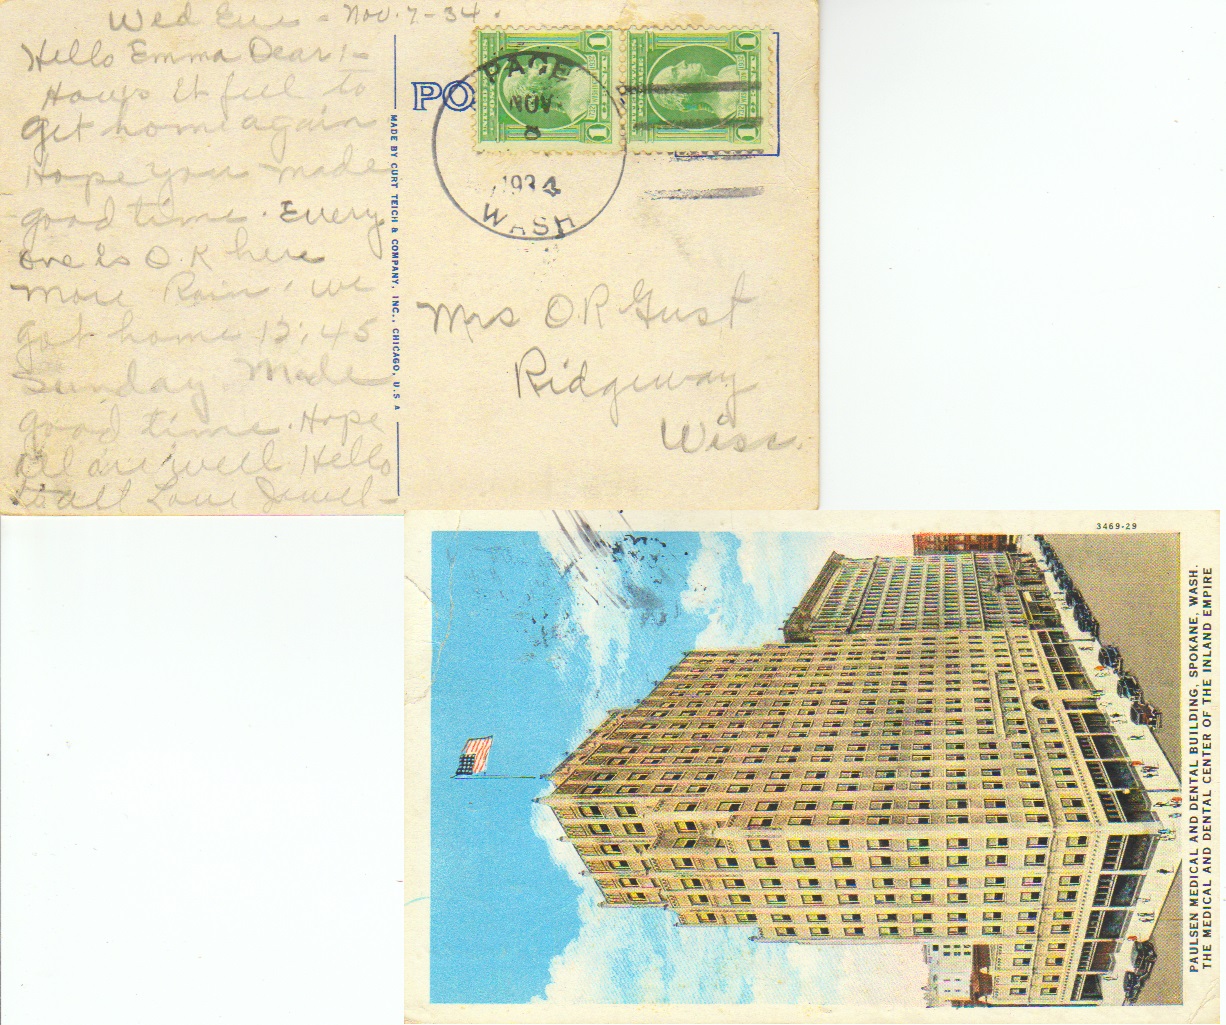 Wed Eve - Nov. 7-34.
Hello Emma Dear:-
Hows It feel to
get home again
Hope you made
good time. Every
one Is O.K here
More Rain. we
got home 12:45
Sunday. Made
good time. Hope
all are well Hello
to all Love Jewel-
MADE BY CURT TEICH & COMPANY, INC., CHICAGO, U.S.A
PO
PAGE
NOV
8
1934
WASH
1
1
1
1
Mrs O.R Gust
Ridgeway
Wisc.
3469-29
PAULSEN MEDICAL AND DENTAL BUILDING, SPOKANE, WASH.
THE MEDICAL AND DENTAL CENTER OF THE INLAND EMPIRE